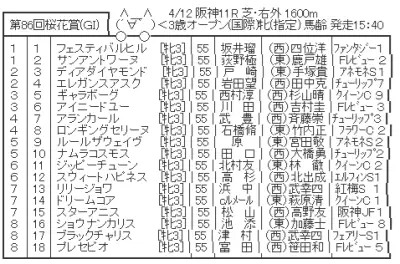 第86回桜花賞(GI) ( ´∀｀ ) 4/12 阪神11R 芝・右外 1600m
<3歳オープン(国際)牝(指定) 馬齢 発走15:40
1 1 フェスティバルヒル [牝3] 55 坂井瑠 (西)四位洋 ファンタジー1
1 2 サンアントワーヌ [牝3] 55 荻野極 (東)鹿戸雄 Fレビュー2
2 3 ディアダイヤモンド [牝3] 55 戸崎 (東)手塚貴 アネモネS1
2 4 エレガンスアスク [牝3] 55 岩田望 (西)田中克 チューリップ7
3 5 ギャラボーグ [牝3] 55 西村淳 (西)杉山晴 クイーンC9
3 6 アイニードユー [牝3] 55 川田 (西)吉村圭 Fレビュー3
4 7 アランカール [牝3] 55 武豊 (西)斉藤崇 チューリップ3
4 8 ロンギングセリーヌ [牝3] 55 石橋脩 (東)竹内正 フラワーC2
5 9 ルールザウェイヴ [牝3] 55 原 (東)宮田敬 アネモネS2
5 10 ナムラコスモス [牝3] 55 田口 (西)大橋勇 チューリップ2
6 11 ジッピーチューン [牝3] 55 北村友 (東)林徹 クイーンC2
6 12 スウィートハピネス [牝3] 55 高杉 (西)北出成 エルフィンS1
7 13 リリージョワ [牝3] 55 浜中 (西)武幸四 紅梅S1
7 14 ドリームコア [牝3] 55 Cルメール (東)萩原清 クイーンC1
7 15 スターアニス [牝3] 55 松山 (西)高野友 阪神JF1
8 16 ショウナンカリス [牝3] 55 池添 (東)加藤士 Fレビュー8
8 17 ブラックチャリス [牝3] 55 津村 (西)武幸四 フェアリーS1
8 18 プレセピオ [牝3] 55 富田 (西)笹田和 Fレビュー5